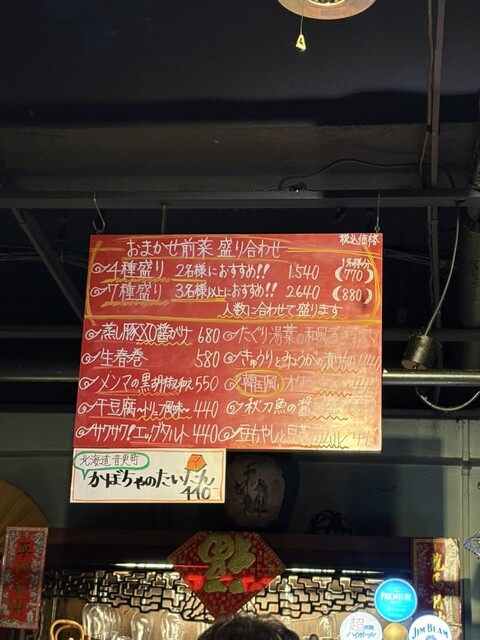 おまかせ前菜 盛り合わせ
税込価格
4種盛り 2名様におすすめ!! 1.540
1名様分
(770)
7種盛り 3名様以上におすすめ!! 2640
(880)
人数に合わせて盛ります
蒸し豚XO醤がけ 680
生春巻 580
メンマの黒胡椒和え 550
干豆腐 440
サクサク!エッグタルト 440
たぐり湯葉の
きゅうりとみょうがの漬け物
韓国風
秋刀魚の
豆もやしと
北海道 音更町
かぼちゃのたいたん
440
PREMIUM
超
ハイボール
JIM BEAM